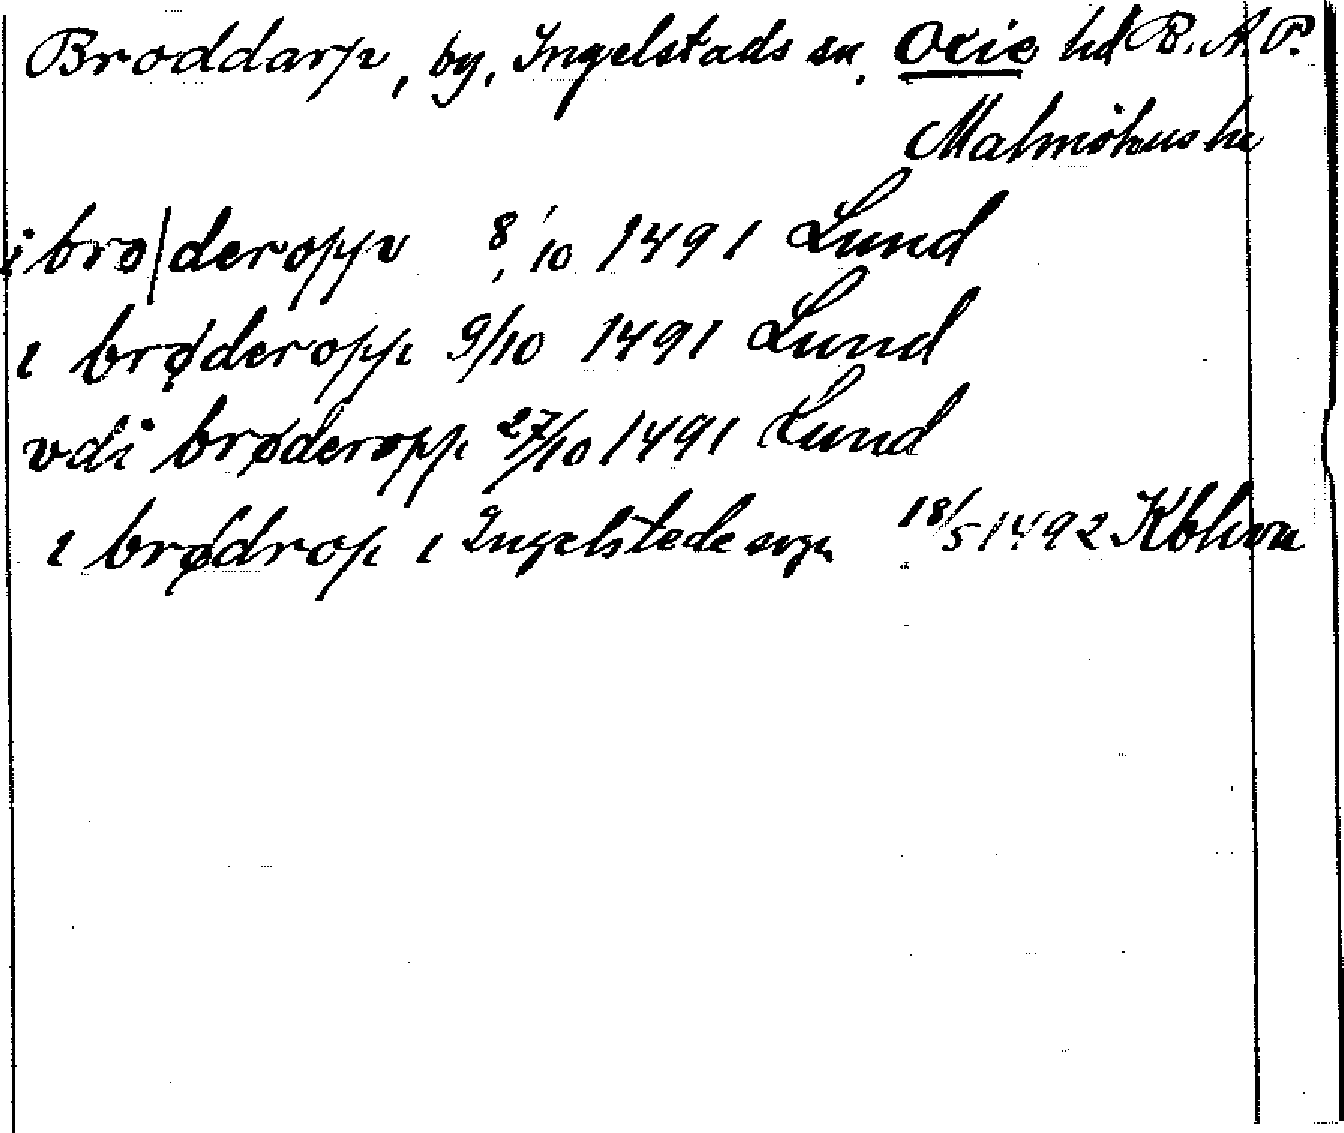 Broddarp, by, Ingelstads sn. Oxie hd R.A.P.
Malmöhus län
i bro|deropp 8/10 1491 Lund
i brøderopp 9/10 1491 Lund
vdi brøderopp 27/10 1491 Lund
i brødrop i Ingelstede sogn 18/5 1492 Kbhvn